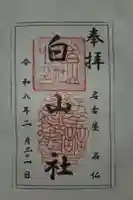 奉拝
名古屋 石仏
白山社
令和八年二月二十一日